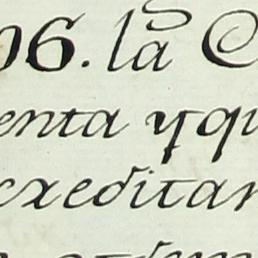 06. la C
enta y qu
creditar